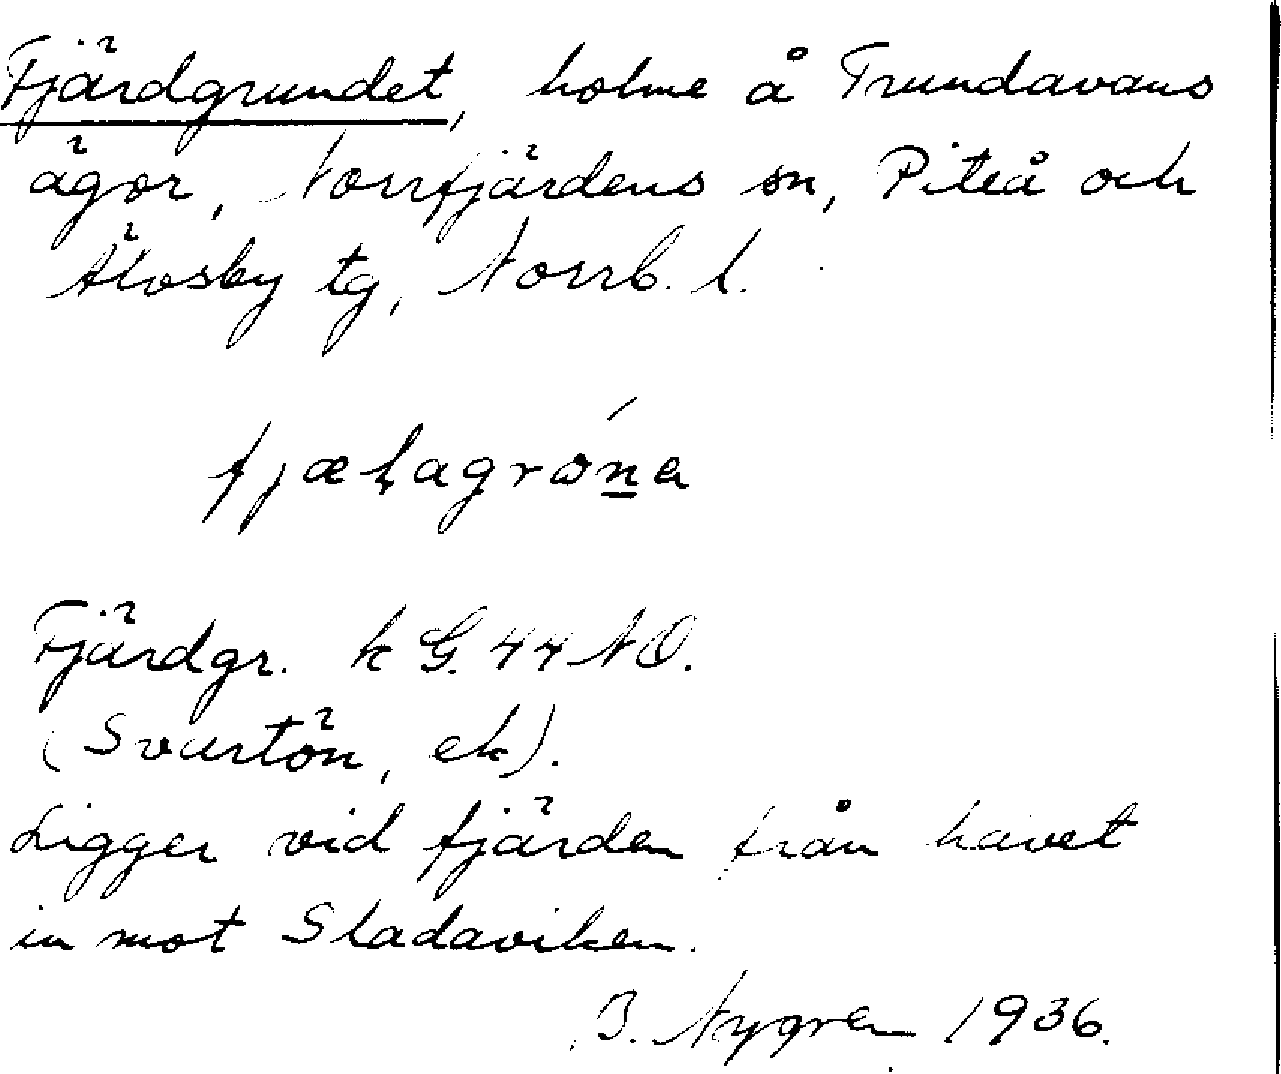 Fjärdgrundet, holme å Trundavans
ägor, Norrfjärdens sn, Piteå och
Älvsby tg, Norrb. l.
fjæł̣agrɷ́n̲a
Fjärdgr. k G. 44 NO.
(Svartön, ek).
Ligger vid fjärden från havet
in mot Sladaviken.
B. Nygren 1936.